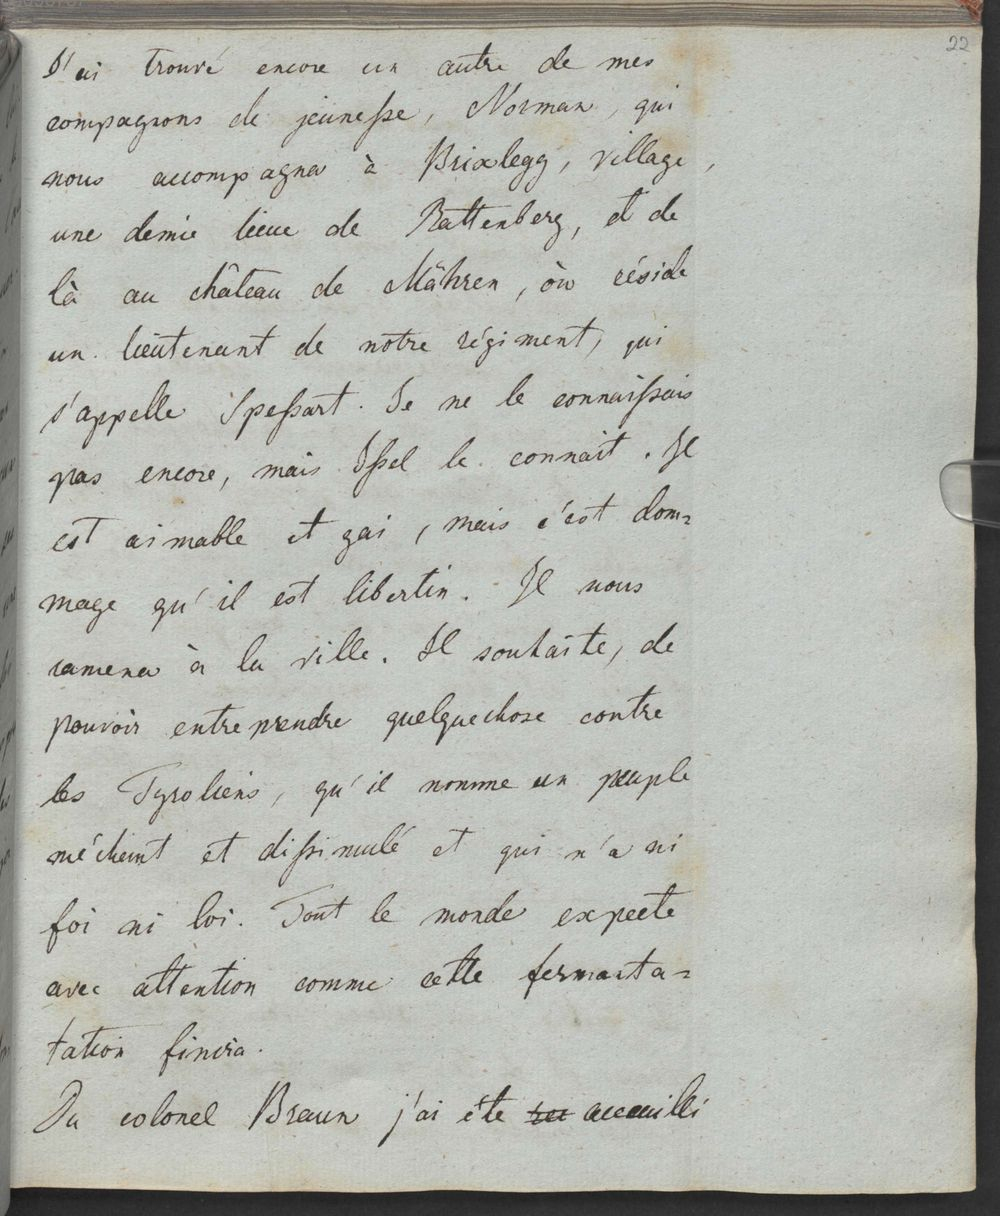 22
J'ai trouvé encore un autre de mes
compagnons de jeunesse, Norman, qui
nous accompagna à Brixlegg, village,
une demie lieue de Rattenberg, et de
là au château de Mähren, où réside
un lieutenant de notre régiment, qui
s'appelle Spessart. Je ne le connaissais
pas encore, mais Issel le connait. Il
est aimable et gai, mais c'est dom=
mage qu'il est libertin. Il nous
ramena à la ville. Il souhaite, de
pouvoir entreprendre quelquechose contre
les Tyroliens, qu'il nomme un peuple
méchant et dissimulé et qui n'a ni
foi ni loi. Tout le monde expecte
avec attention comme cette fermanta=
tation finira.
Du colonel Braun j'ai éte accuilli